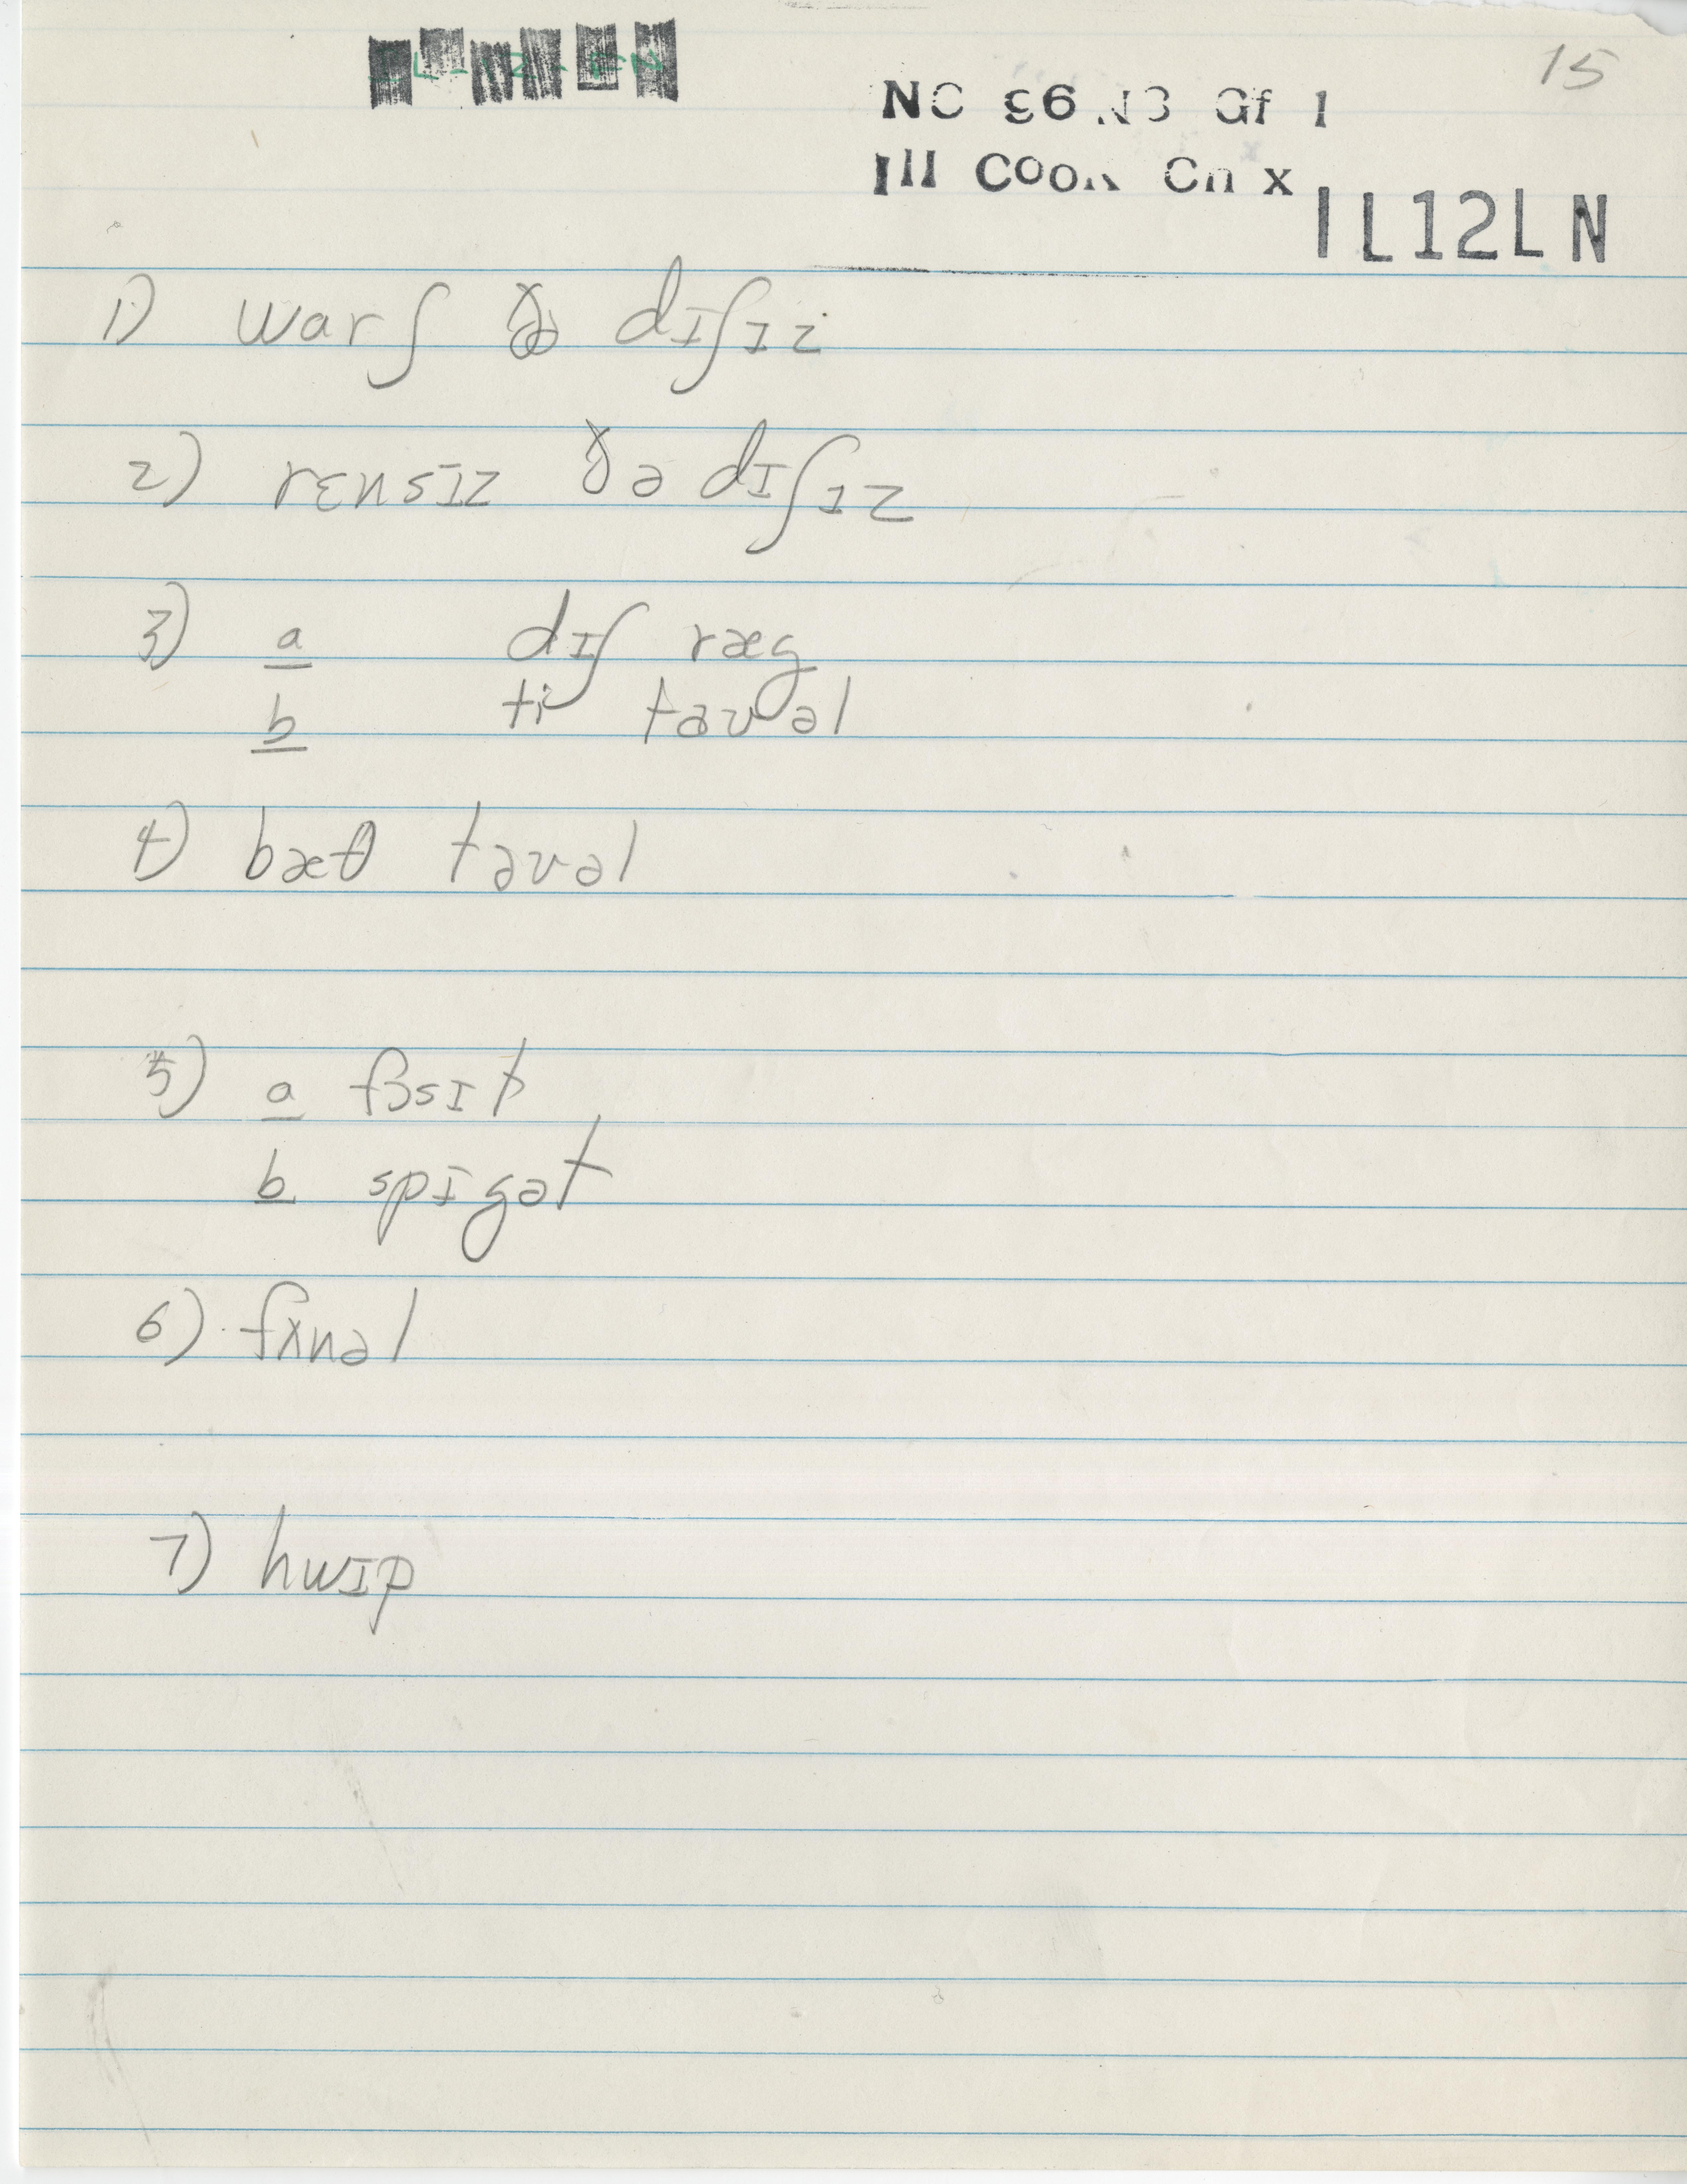 15
NC 96 N3 Gf 1
Ill Cook Cn x
IL12LN
1) warʃ ðə dɪʃɪz
2) rɛnsɪz ðə dɪʃɪz
3) a dɪʃ ræg
b ti tavəl
4) bæθ tavəl
5) a fɜsɪt
b spɪgət
6) fʌnəl
7) hwɪp